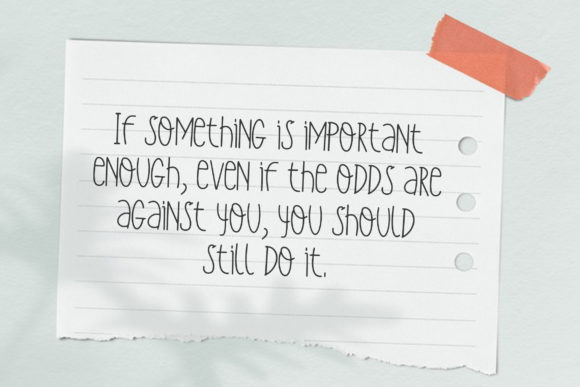 If something is important
enough, even if the odds are
against you, you should
still do it.